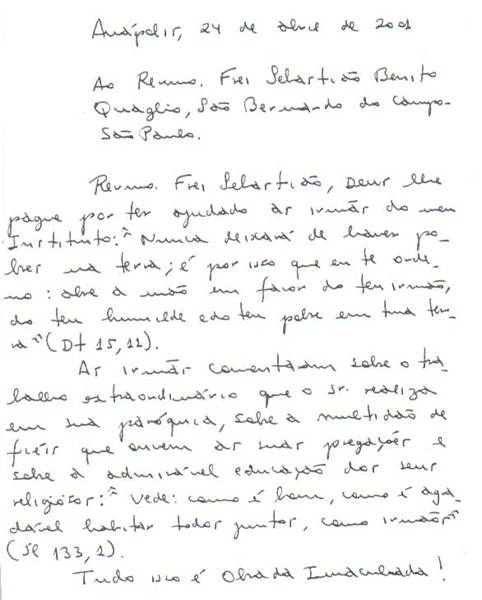 Anápolis, 24 de abril de 2001
Ao Revmo. Frei Sebastião Benito
Quaglio, São Bernardo do Campo-
São Paulo.
Revmo. Frei Sebastião, Deus lhe
pague por ter ajudado as irmãs do meu
Instituto: "Nunca deixará de haver po-
bres na terra; é por isso que eu te orde-
no: abre a mão em favor do teu irmão,
do teu humilde e do teu pobre em tua ter-
ra" (Dt 15,11).
As irmãs comentaram sobre o tra-
balho extraordinário que o sr. realiza
em sua paróquia, sobre a multidão de
fiéis que ouvem as suas pregações e
sobre a admirável educação dos seus
religiosos: "Vede: como é bom, como é agra-
dável habitar todos juntos, como irmãos"
(Sl 133,1).
Tudo isso é Obra da Imaculada!